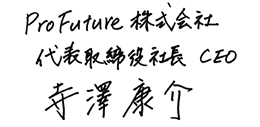 ProFuture 株式会社
代表取締役社長 CEO
寺澤康介